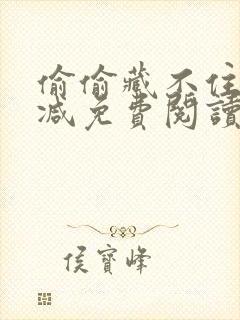 偷偷藏不住
減免費閱讀
侯寶峰